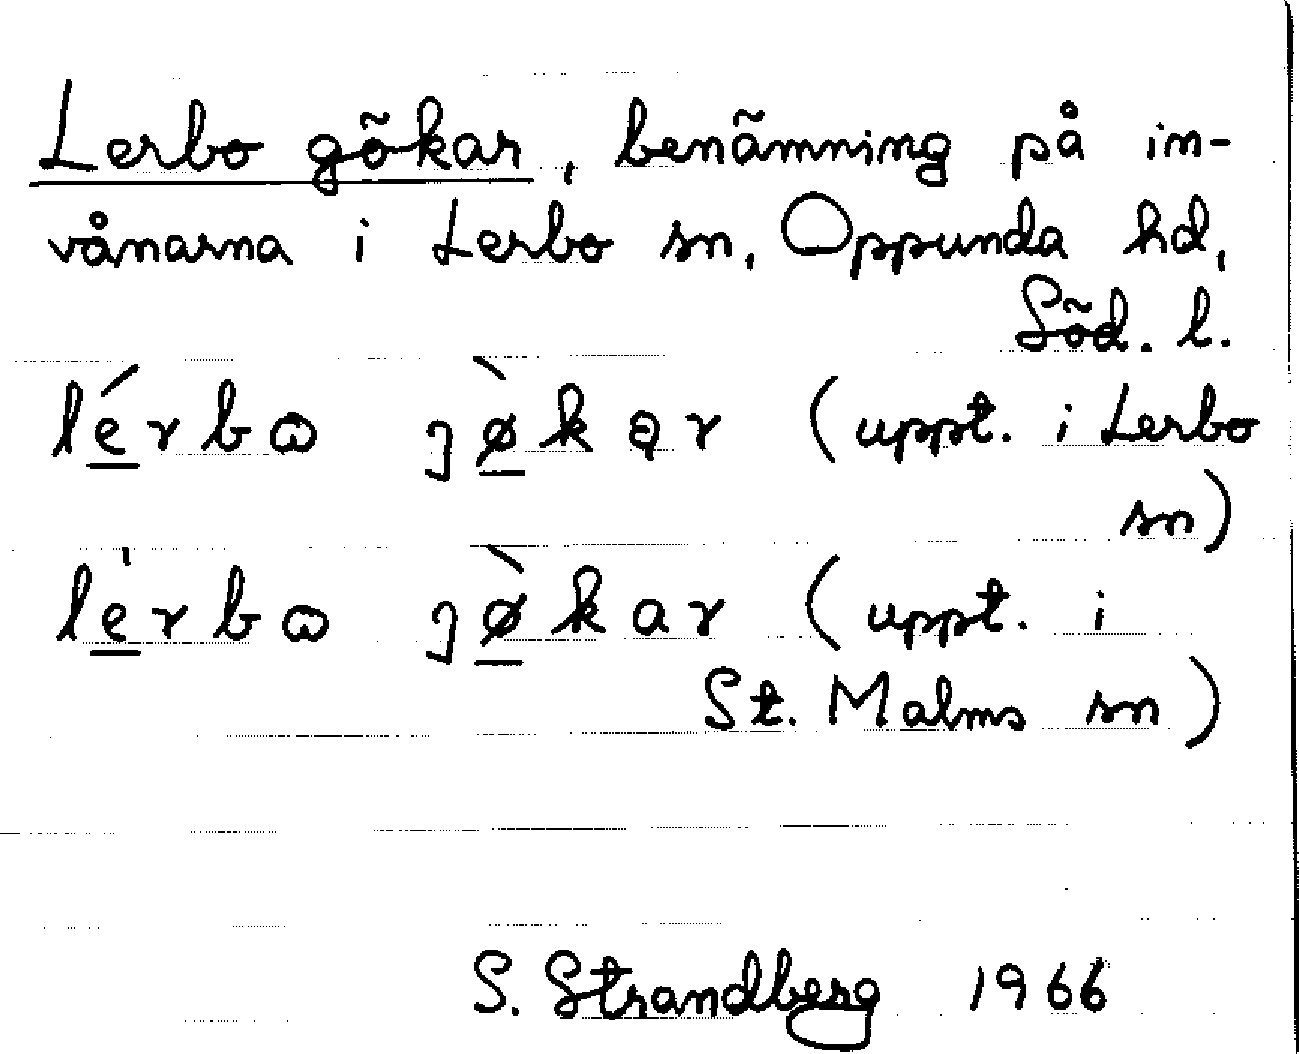 Lerbo gökar, benämning på in-
vånarna i Lerbo sn, Oppunda hd,
Söd. l.
lérbɷ ȷø̀kɐr (uppt. i Lerbo
sn)
le̍rbɷ ȷø̀kar (uppt. i
St. Malms sn)
S. Strandberg 1966